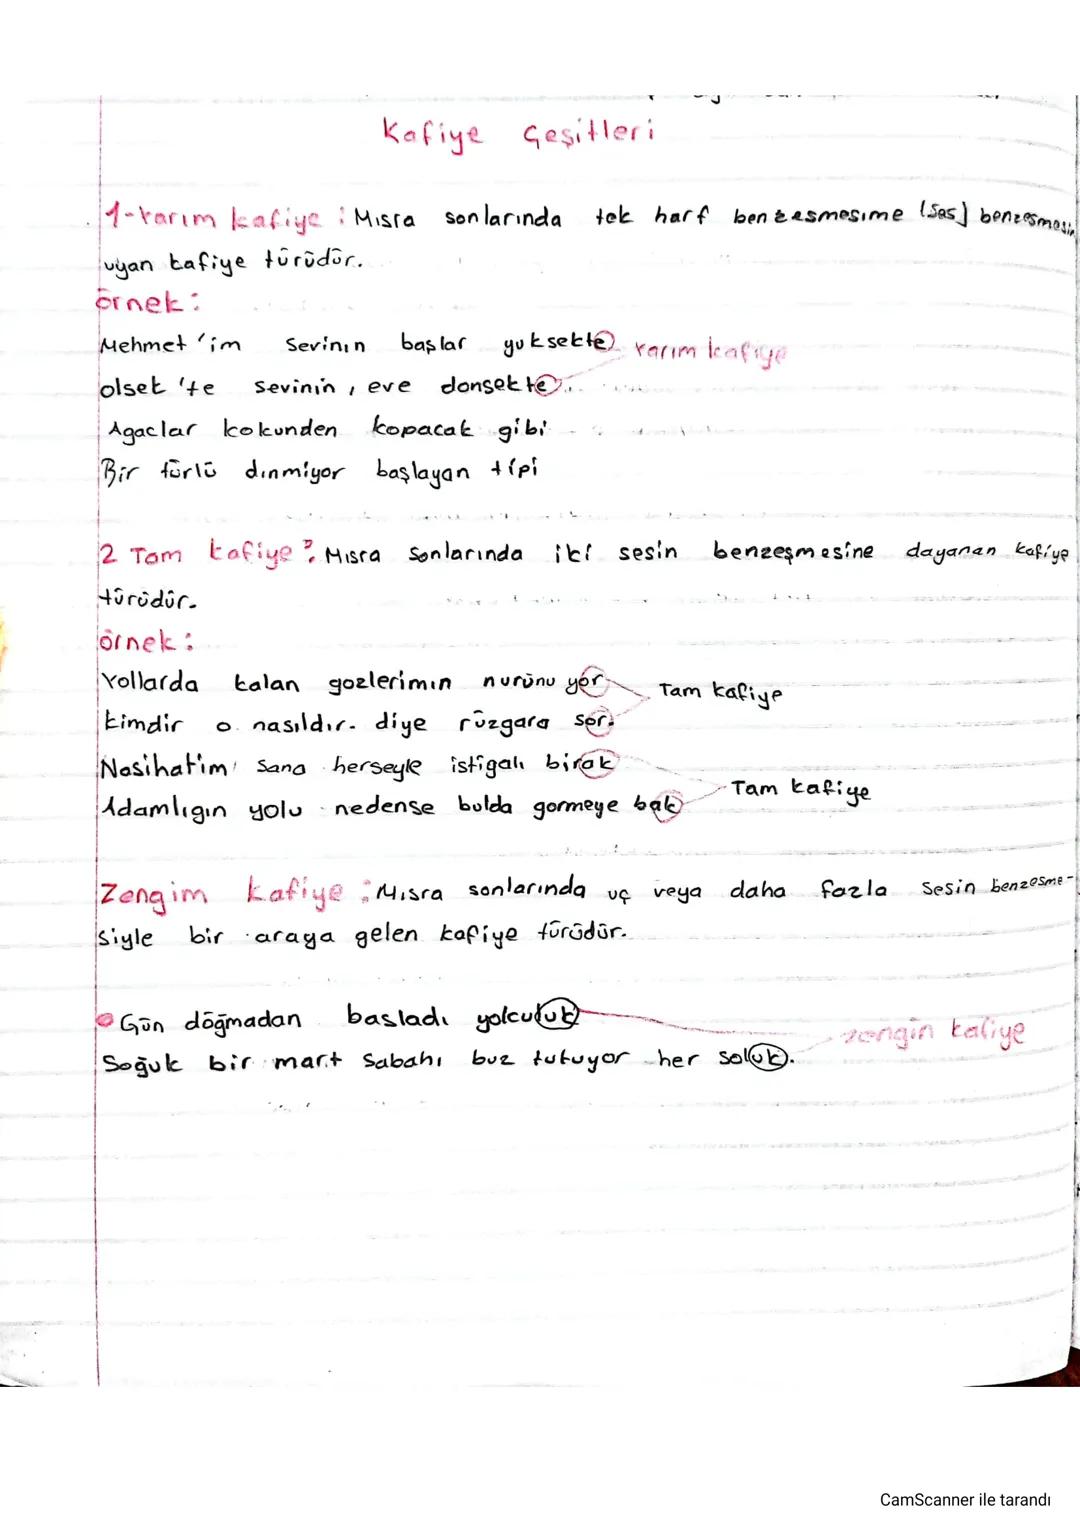 Kafiye Çeşitleri
1-Yarım kafiye : Mısra sonlarında tek harf benzesmesıme (Ses) benzesmesin
uyan kafiye türüdür.
örnek :
Mehmet 'im Sevinin başlar yuksekte Yarım kafiye
olsek 'te sevinin, eve donsekte
Agaclar kokunden kopacak gibi
Bir türlü dınmiyor başlayan tipi
2 Tam kafiye : Mısra Sonlarında iki sesin benzeşmesine dayanan kafiye
türüdür.
örnek :
Yollarda kalan gozlerimın nurünu yor Tam kafiye
kimdir o nasıldır. diye rüzgara sor.
Nasihatim sana herseyle istigalı birak
Adamlıgın yolu nedense bulda gormeye bak Tam kafiye
Zengim kafiye : Mısra sonlarında uç veya daha fazla Sesin benzesme-
siyle bir araya gelen kafiye türüdür.
Gün döğmadan basladı yolculuk
zengin kafiye
Soğuk bir mart Sabahı buz tutuyor her soluk.
CamScanner ile tarandı